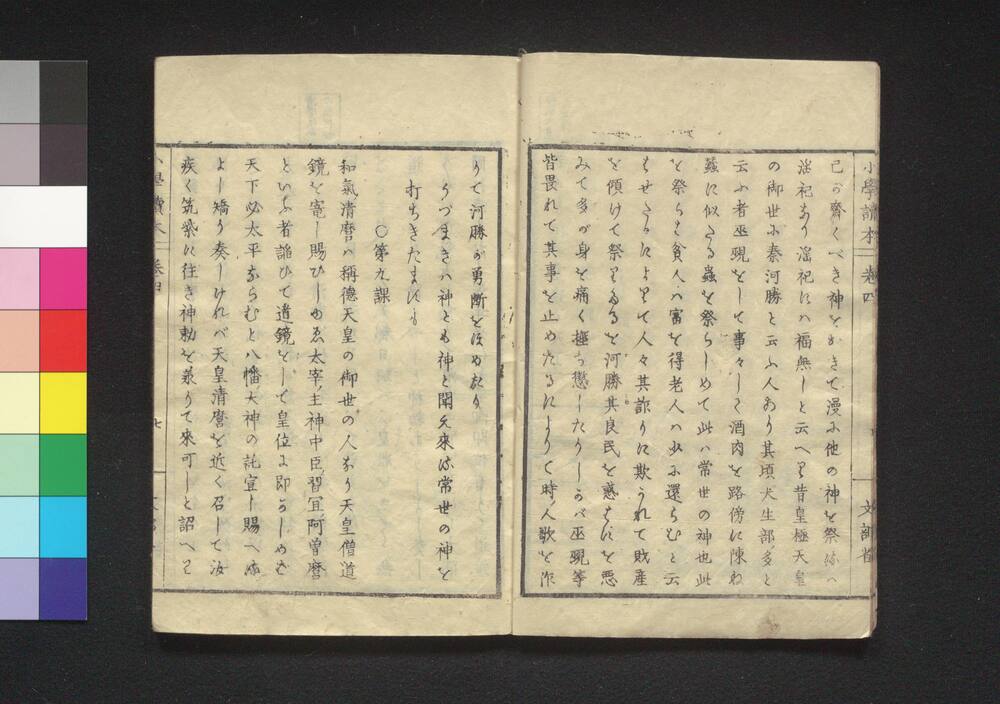 小學讀本 卷四
文部省
己が齋くべき神をおきて漫に他の神を祭るハ
淫祀なり淫祀にハ福無しと云へり昔皇極天皇
の御世に秦河勝と云ふ人あり其頃犬生部ノ多と
云ふ者巫覡をして事々しく酒肉を路傍に陳ね
蠶に似たる蟲を祭らしめて此ハ常世の神也此
を祭らば貧人ハ富を得老人ハ少に還らむと云
はせたりによりて人々其詐りに欺かれて財産
を傾けて祭りゐるを河勝其良民を惑はすを惡
みて多が身を痛く極め懲したりしかバ巫覡等
皆畏れて其事を止めたるにより て時ノ人歌を作
りて河勝が勇斷をほめたり
うづまさハ神とも神と聞え來る常世の神を
打ちきたますも
○第九課
和氣清麿ハ稱德天皇の御世の人なり天皇僧道
鏡を寵し賜ひしゆゑ太宰ノ主神中臣ノ習宜ノ阿曾麿
といふ者諂ひて道鏡をして皇位に即かしめば
天下必太平ならむと八幡ノ大神の託宣し賜へる
よし矯り奏しけれバ天皇清麿を近く召して汝
疾く筑紫に往き神勅を承りて來可しと詔へり
小學讀本 卷四
七